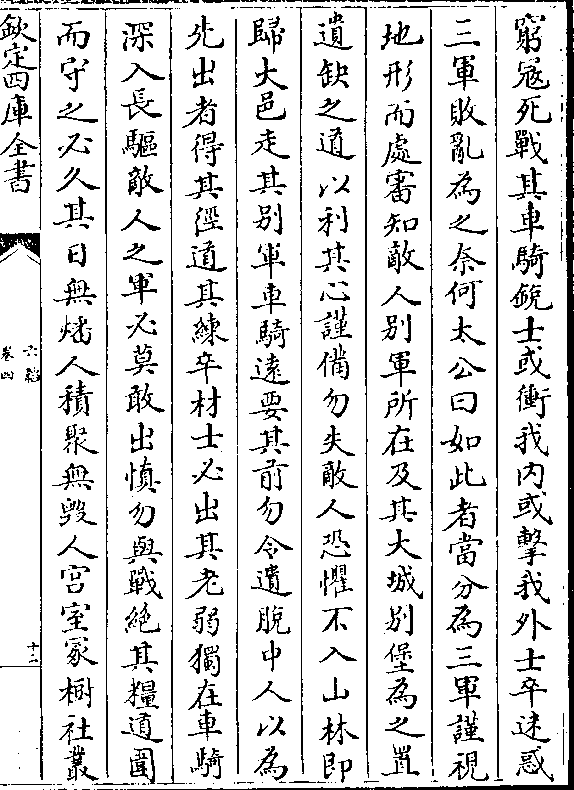 窮寇死戰其車騎銳士或衝我内或擊我外士卒迷惑
三軍敗亂為之奈何太公曰如此者當分為三軍謹視
地形而處審知敵人别軍所在及其大城别堡為之置
遺缺之道以利其心謹備勿失敵人恐懼不入山林即
歸大邑走其别軍車騎逺要其前勿令遺脫中人以為
先出者得其徑道其練卒材士必出其老弱獨在車騎
深入長驅敵人之軍必莫敢出慎勿與戰絶其糧道圍
而守之必久其日無燔人積聚無毁人宫室冢樹社叢
欽定四庫全書
六韜
卷四
十二